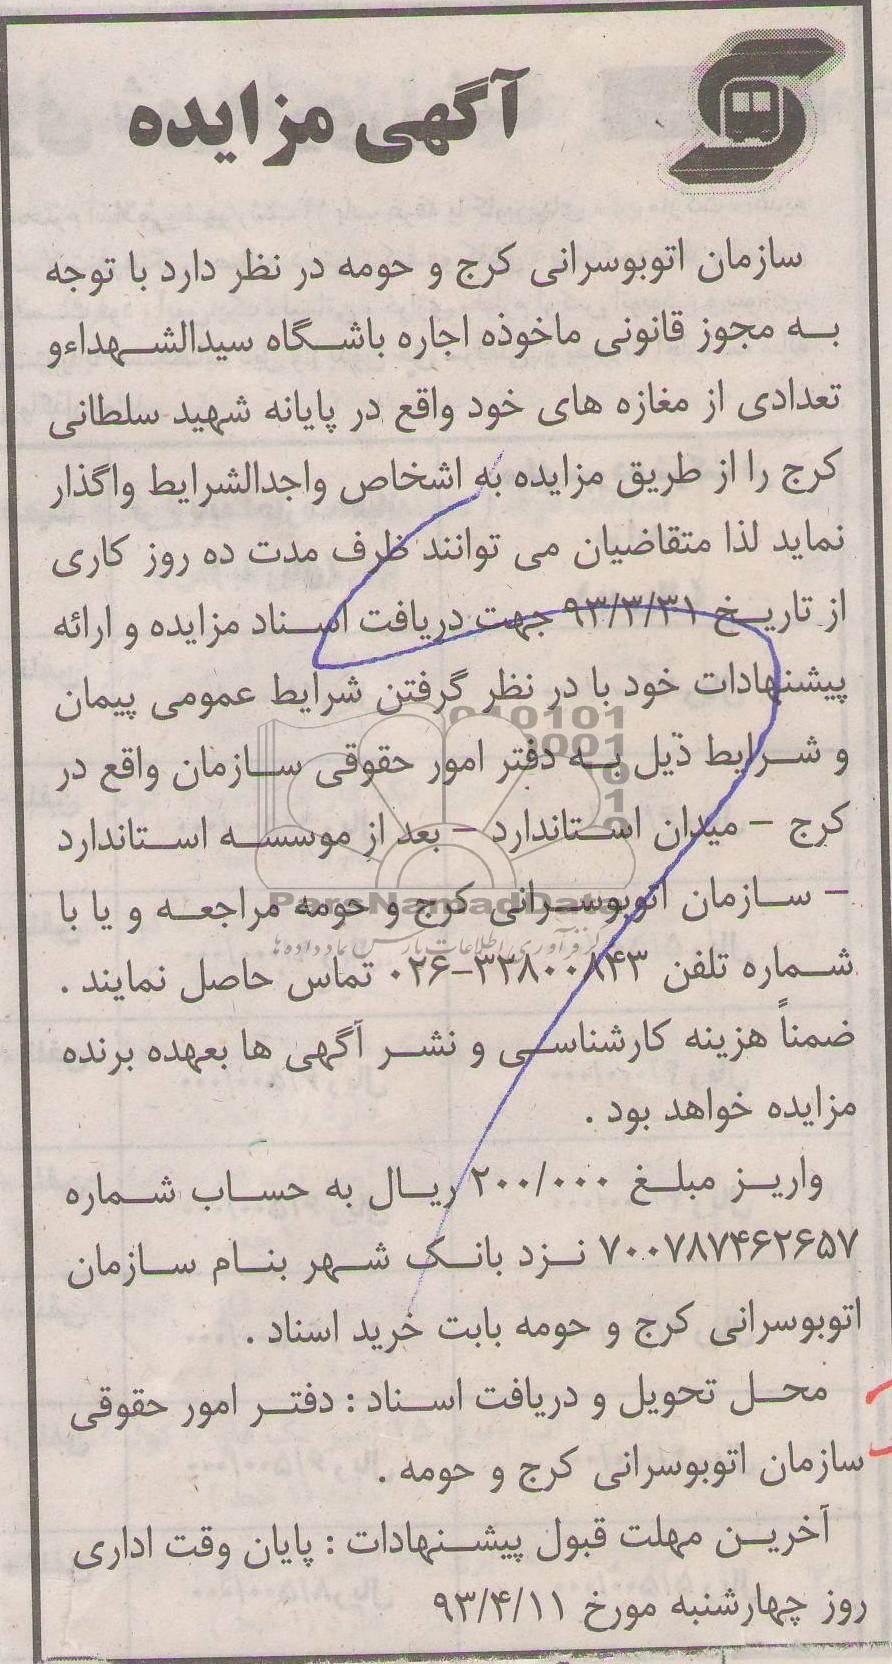 آگهی مزایده
سازمان اتوبوسرانی کرج و حومه در نظر دارد با توجه
به مجوز قانونی ماخوذه اجاره باشگاه سیدالشهداءو
تعدادی از مغازه های خود واقع در پایانه شهید سلطانی
کرج را از طریق مزایده به اشخاص واجدالشرایط واگذار
نماید لذا متقاضیان می توانند ظرف مدت ده روز کاری
از تاریخ ۹۳/۳/۳۱ جهت دریافت اسناد مزایده و ارائه
پیشنهادات خود با در نظر گرفتن شرایط عمومی پیمان
و شرایط ذیل به دفتر امور حقوقی سازمان واقع در
کرج – میدان استاندارد – بعد از موسسه استاندارد
– سازمان اتوبوسرانی کرج و حومه مراجعه و یا با
شماره تلفن ۳۳۸۰۰۸۴۳-۰۲۶ تماس حاصل نمایند .
ضمناً هزینه کارشناسی و نشر آگهی ها بعهده برنده
مزایده خواهد بود .
واریز مبلغ ۲۰۰/۰۰۰ ریال به حساب شماره
۷۰۰۷۸۷۴۶۲۶۵۷ نزد بانک شهر بنام سازمان
اتوبوسرانی کرج و حومه بابت خرید اسناد .
محل تحویل و دریافت اسناد : دفتر امور حقوقی
سازمان اتوبوسرانی کرج و حومه .
آخرین مهلت قبول پیشنهادات : پایان وقت اداری
روز چهارشنبه مورخ ۹۳/۴/۱۱